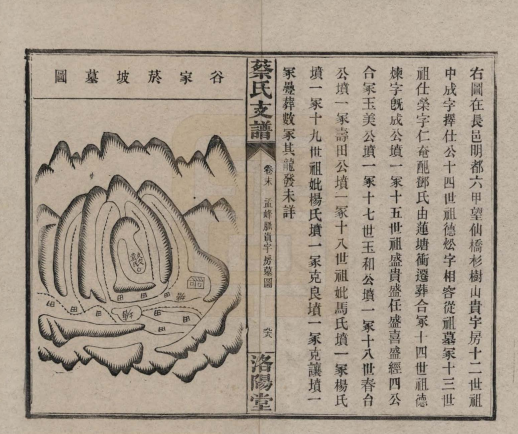 右圖在長邑明都六甲望仙橋杉樹山貴字房十二世祖
中成字擇仕公十四世祖德焧字相容從祖墓冢十三世
祖仕榮字仁奄配鄧氏由蓮塘衝遷葬合冢十四世祖德
煉字旣成公墳一冢十五世祖盛貴盛任盛喜盛經四公
合冢玉美公墳一冢十七世玉和公墳一冢十八世春台
公墳一冢壽田公墳一冢十八世祖妣馬氏墳一冢楊氏
墳一冢十九世祖妣楊氏墳一冢克良墳一冢克讓墳一
冢㬪葬數冢其龍發未詳
蔡氏支譜
卷末
孟峰鵬貴字房墓圖
洛陽堂
谷家菸坡墓圖
田
田
田
田